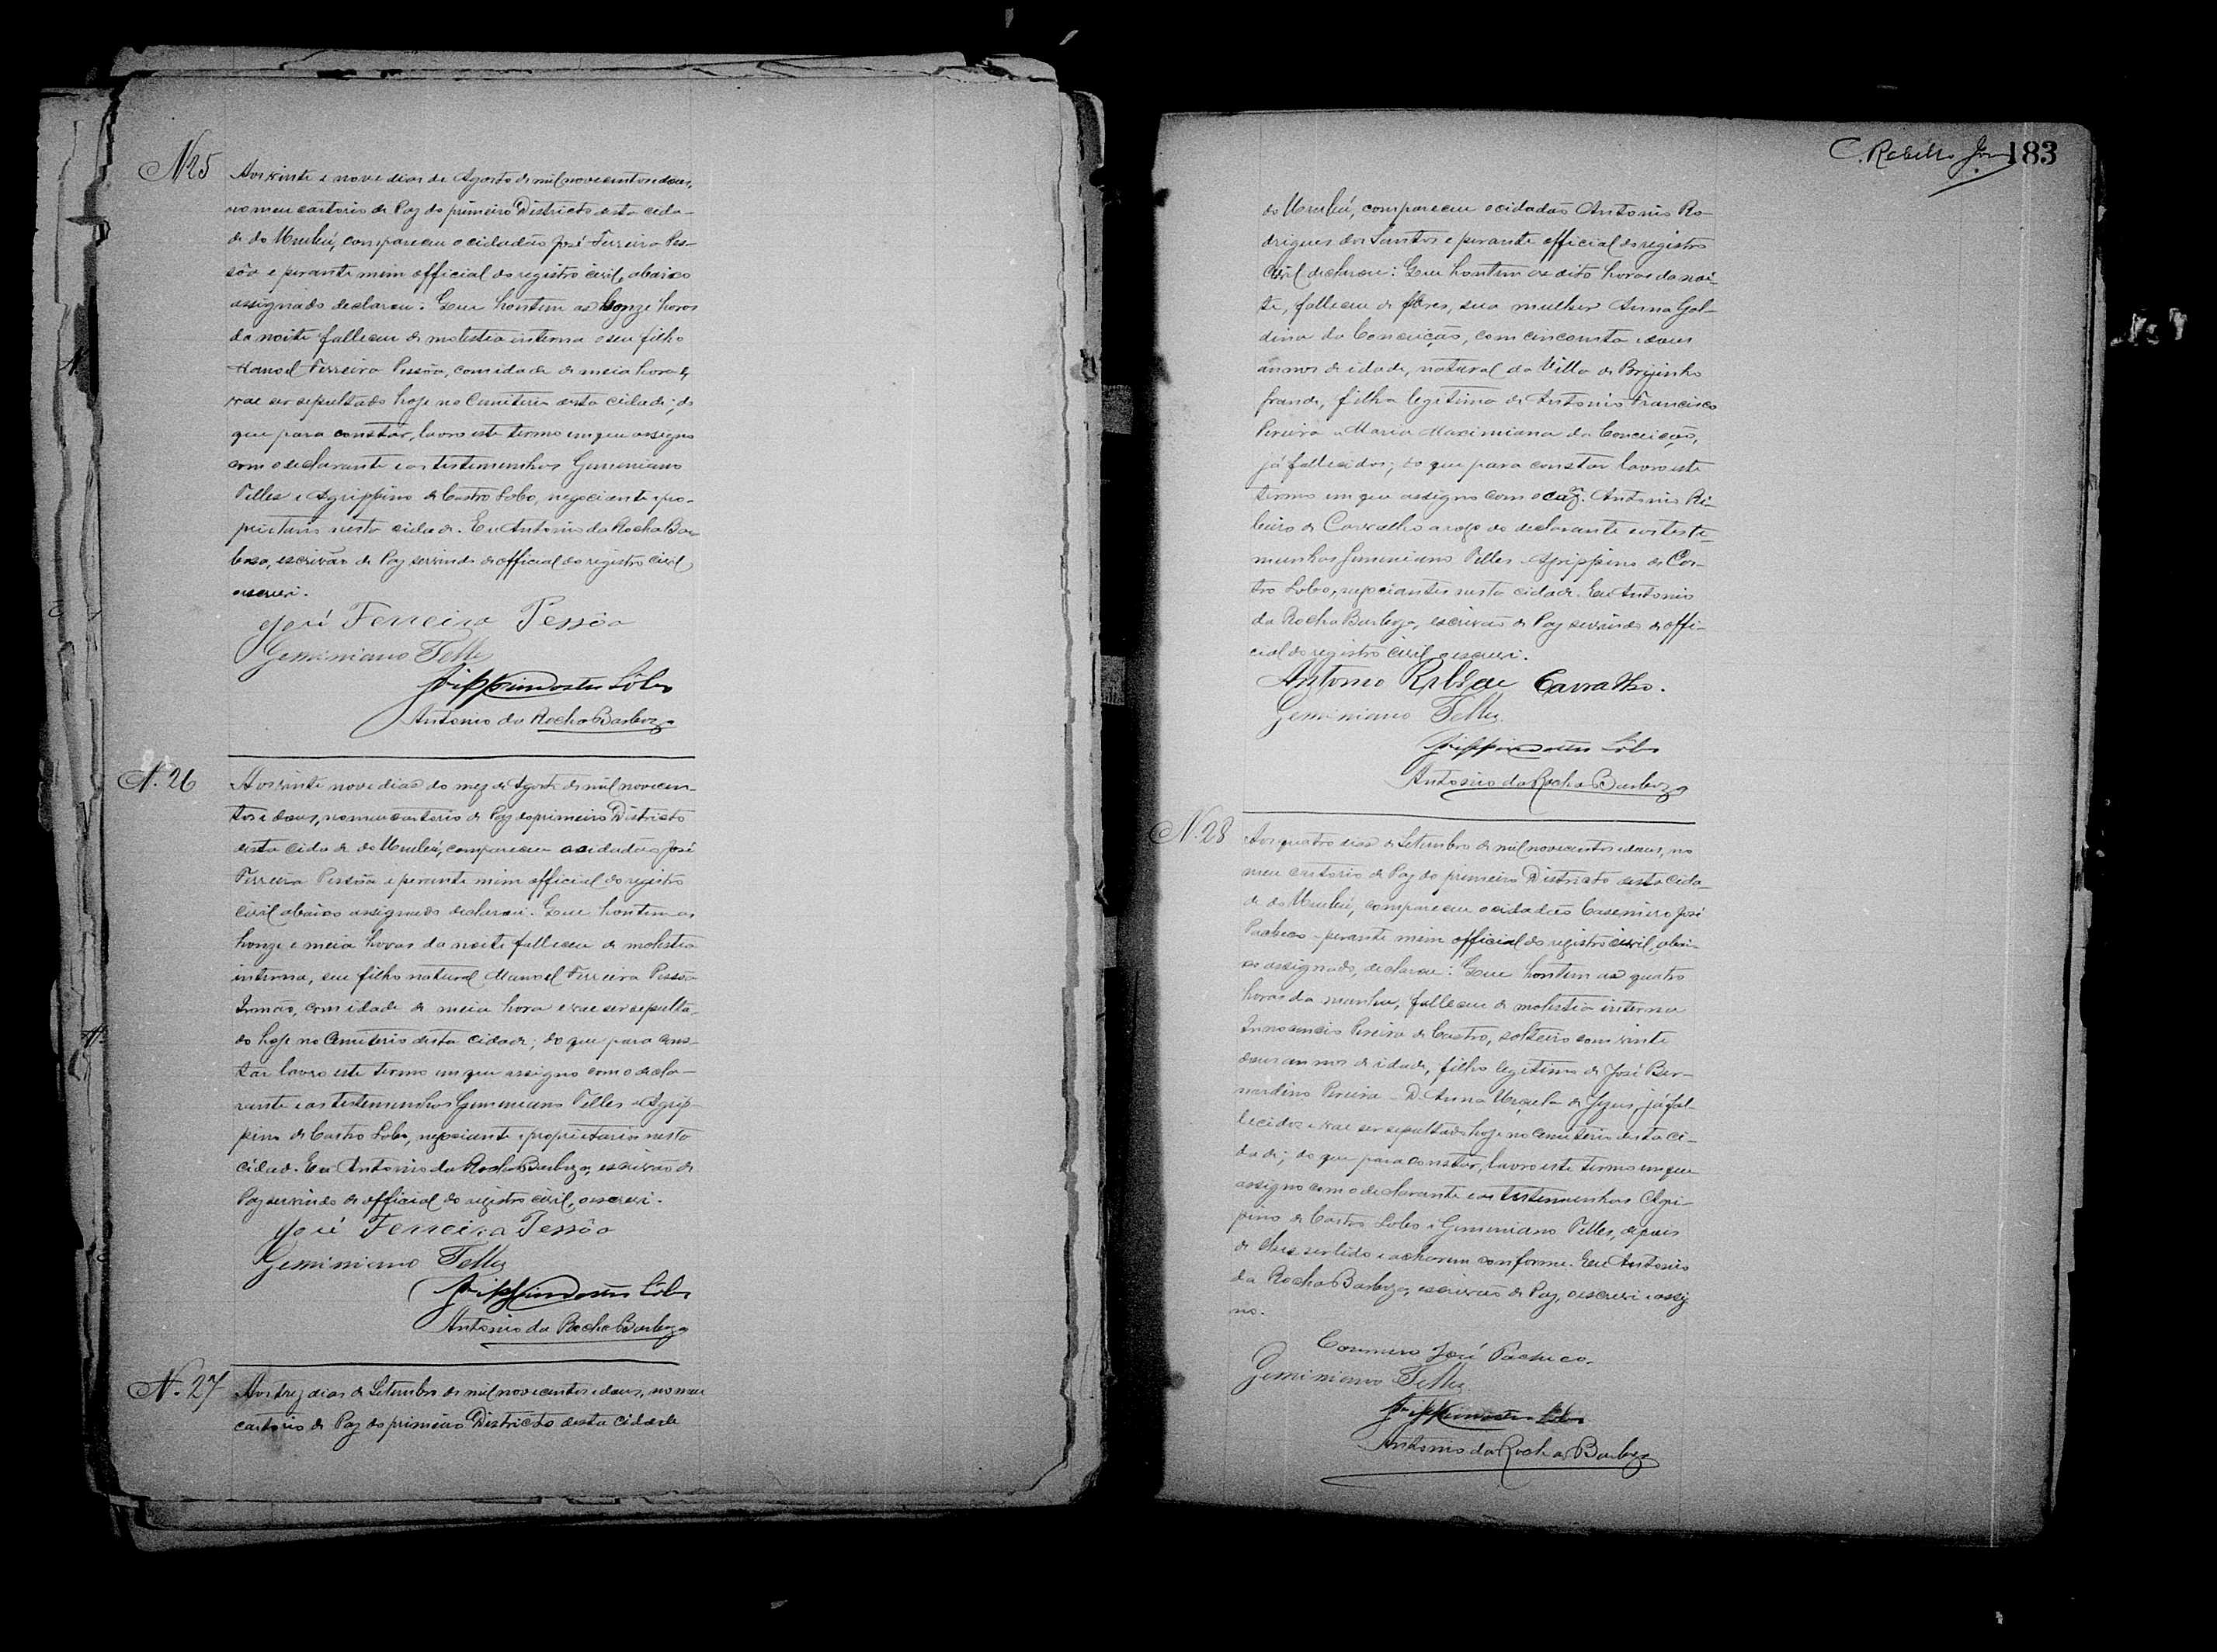 N 25
Aos vinte e nove dias de Agosto de mil novecentos e dous,
no meu cartorio de Paz do primeiro Districto desta cida-
de do Urubú, compareceu o cidadão José Ferreira Pes-
sôa e perante mim official do registro civil, abaixo
assignado declarou: Que hontem as honze horas
da noite falleceu de molestia interna o seu filho
Manoel Ferreira Pessôa, com idade de meia hora e,
vae ser sepultado hoje no Cemiterio desta cidade; do
que para constar, lavro este termo em que assigno
com o declarante e as testemunhas Geminiano
Telles e Agrippino de Castro Lobo, negociante e pro-
prietario nesta cidade. Eu Antonio da Rocha Bar-
boza, escrivão de Paz servindo de official do registro civil
o escrevi.
José Ferreira Pessôa
Geminiano Telles
Agrippino Castro Lôbo
Antonio da Rocha Barboza
N. 26
Aos vinte nove dias do mez de Agosto de mil novecen-
tos e dous, no meu cartorio de Paz do primeiro Districto
desta cidade do Urubú, compareceu o cidadão José
Ferreira Pessôa e perante mim official do registro
civil abaixo assignado declarou. Que hontem as
honze e meia horas da noite falleceu de molestia
interna, seu filho natural Manoel Ferreira Pessôa
Irmão, com idade de meia hora e vae ser sepulta-
do hoje no Cemiterio desta cidade; do que para cons-
tar lavro este termo em que assigno com o decla-
rante e as testemunhas Geminiano Telles e Agrip-
pino de Castro Lobo, negociante e proprietario nesta
cidade. Eu Antonio da Rocha Barboza, escrivão de
Paz servindo de official do registro civil, o escrevi.
José Ferreira Pessôa
Geminiano Telles
Agrippino Castro Lôbo
Antonio da Rocha Barboza
N. 27
Aos trez dias de Setembro de mil novecentos e dous, no meu
cartorio de Paz do primeiro Districto desta cidade
C. Rabello Jor. 183
do Urubú, compareceu o cidadão Antonio Ro-
drigues dos Santos e perante official do registro
civil declarou: Que hontem as oito horas da noi-
te, falleceu de febres, sua mulher Anna Gal-
dina da Conceição, com cincoenta e dous
annos de idade, natural da Villa de Brejinho
grande, filha legitima de Antonio Francisco
Pereira e Maria Maximiana da Conceição,
já fallecidos; do que para constar lavro este
termo em que assigno com o Antonio Ri-
beiro de Carvalho a rogo do declarante e as teste-
munhas Geminiano Telles e Agrippino de Cas-
tro Lobo, negociantes nesta cidade. Eu Antonio
da Rocha Barboza, escrivão de Paz servindo de offi-
cial do registro civil o escrevi.
Antonio Carvalho.
Geminiano Telles
Agrippino Castro Lôbo
Antonio da Rocha Barboza
N. 28
Aos quatro dias de Setembro de mil novecentos e dous, no
meu cartorio de Paz do primeiro Districto desta cida-
de do Urubú, compareceu o cidadão Casemiro José
Pacheco e perante mim official do registro civil, abai-
xo assignado, declarou: Que hontem as quatro
horas da manha, falleceu de molestia interna
Innocencio Pereira de Castro, solteiro com vinte
dous annos de idade, filho legitimo de José Ber-
nardino Pereira e D. Anna Urçula de Jezus, já fal-
lecidos e vae ser sepultado hoje no cemiterio desta ci-
dade; do que para constar, lavro este termo em que
assigno com o declarante e as testemunhas Agri-
pino de Castro Lobo e Geminiano Telles, depois
de lhes ser lido e acharem conforme. Eu Antonio
da Rocha Barboza, escrivão de Paz, o escrevi e assig-
no.
Casemiro José Pacheco.
Geminiano Telles
Agrippino Castro Lôbo
Antonio da Rocha Barboza